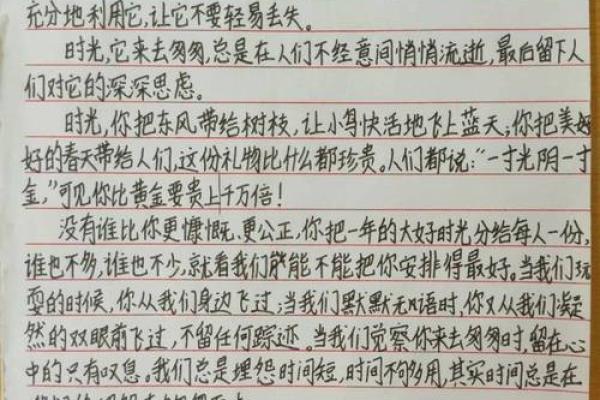 充分地利用它,让它不要轻易丢失。
时光,它来去匆匆,总是在人们不经意间悄悄流逝,最后留下人
们对它的深深思虑。
时光,你把东风带给树枝,让小鸟快活地飞上蓝天;你把美好
好的春天带给人们,这份礼物比什么都珍贵。人们都说:“一寸光阴一寸
金,”可见你比黄金要贵上千万倍!
没有谁比你更慷慨、更公正,你把一年的大好时光分给每人一份,
谁也不多,谁也不少,就看我们能不能把你安排得最好。当我们玩
耍的时候,你从我们身边飞过;当我们默默无语时,你又从我们凝
然的双眼前飞过,不留任何踪迹。当我们觉察你来去匆匆时,留在心
中的只有叹息。我们总是埋怨时间短,时间不够多用,其实时间总是在